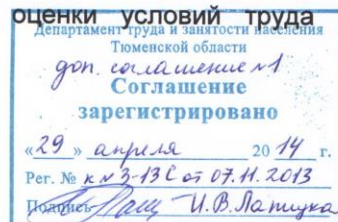 оценки условий труда
Департамент труда и занятости населения
Тюменской области
доп. соглашение №1
Соглашение
зарегистрировано
«29» апреля 2014 г.
Рег. № к №3-13С от 07.11.2013
Подпись И.В.Лапицка